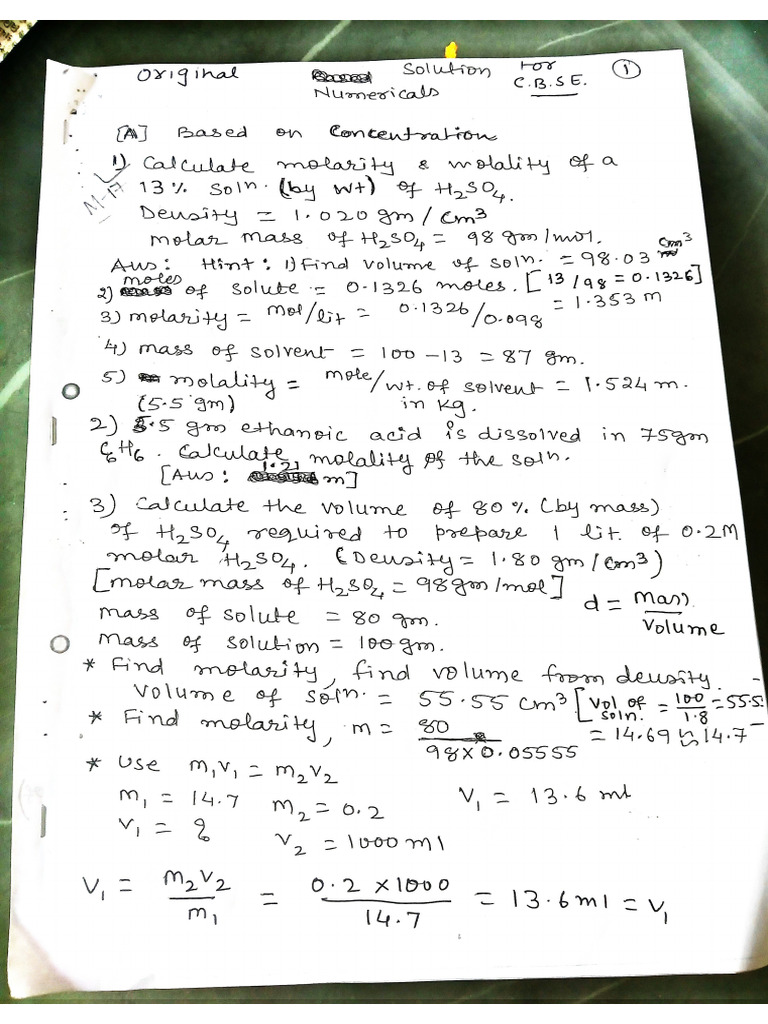 Original Solution For ①
Numericals C.B.S.E.
[A] Based on Concentration
1) Calculate molarity & molality of a
M-17
13% soln. (by wt) of H₂SO₄.
Density = 1.020 gm/cm³
molar mass of H₂SO₄ = 98 gm/mol.
Ans: Hint: 1) Find volume of soln. = 98.03 cm³
2) moles of solute = 0.1326 moles. [13/98 = 0.1326]
3) molarity = mol/lit = 0.1326/0.098 = 1.353 m
4) mass of solvent = 100 - 13 = 87 gm.
5) molality = mole/wt. of solvent in kg. = 1.524 m.
(5.5 gm)
2) 5.5 gm ethanoic acid is dissolved in 75gm
C₆H₆. Calculate molality of the soln.
[Ans: 1.21 m]
3) Calculate the volume of 80% (by mass)
of H₂SO₄ required to prepare 1 lit. of 0.2M
molar H₂SO₄. (Density = 1.80 gm/cm³)
[molar mass of H₂SO₄ = 98gm/mol]
mass of solute = 80 gm. d = Mass/Volume
mass of solution = 100gm.
* Find molarity, find volume from density.
Volume of soln. = 55.55 cm³ [Vol of soln. = 100/1.8 = 55.5
* Find molarity, m = 80/98 X 0.05555 = 14.69 ≈ 14.7
* Use m₁v₁ = m₂v₂
m₁ = 14.7 m₂ = 0.2 V₁ = 13.6 ml
V₁ = ? V₂ = 1000 ml
V₁ = m₂V₂/m₁ = 0.2 X 1000/14.7 = 13.6 ml = V₁